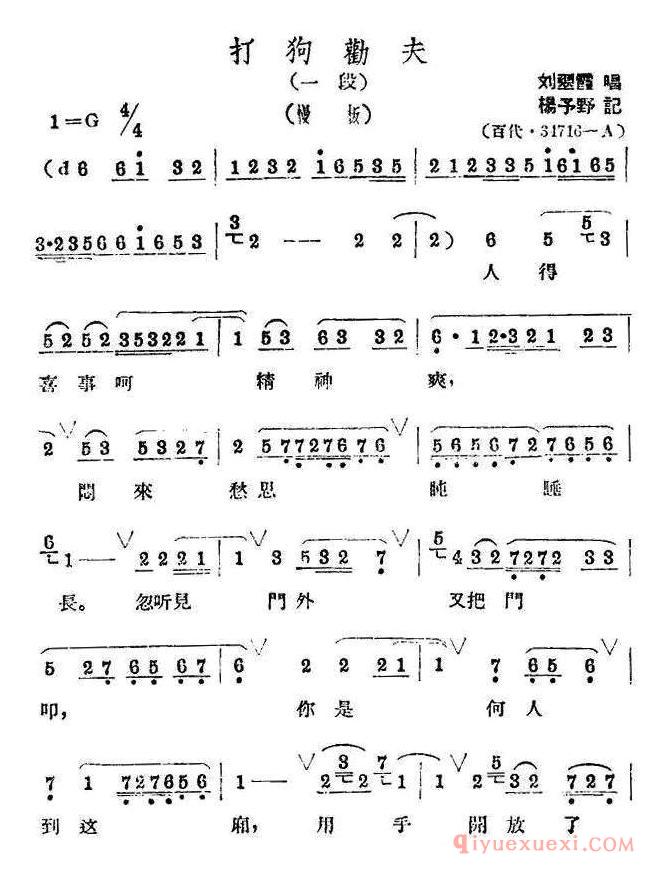 打狗勸夫
(一段)
(慢板)
1=G 4/4
刘翠霞 唱
楊予野 記
(百代·31716—A)
(d6 6i 32 | 1232 1 6535 | 2123351 6165
3·23566 1653 | 3 2 — — — 2 2 | 2) 6 5 5 3
人 得
52 52 35322 1 | 1 53 63 32 | 6·12·321 23
喜事呵 精神 爽,
2 ∨ 53 5327 | 2 57727676 ∨ | 56567276 56
悶來 愁思 盹 睡
6 1 — ∨ 2221 | 1 ∨ 3 532 7 ∨ | 5 432 7272 33
長。 忽听見 門外 又把門
5 27 65 67 | 6 ∨ 2 2 21 | 1 ∨ 7 65 6 ∨
叩, 你是 何人
7 1 727656 | 1 — ∨ 2 3 2 7 1 | 1 ∨ 2 5 32 727
到这 廂, 用手 開放了
qiyuexuexi.com